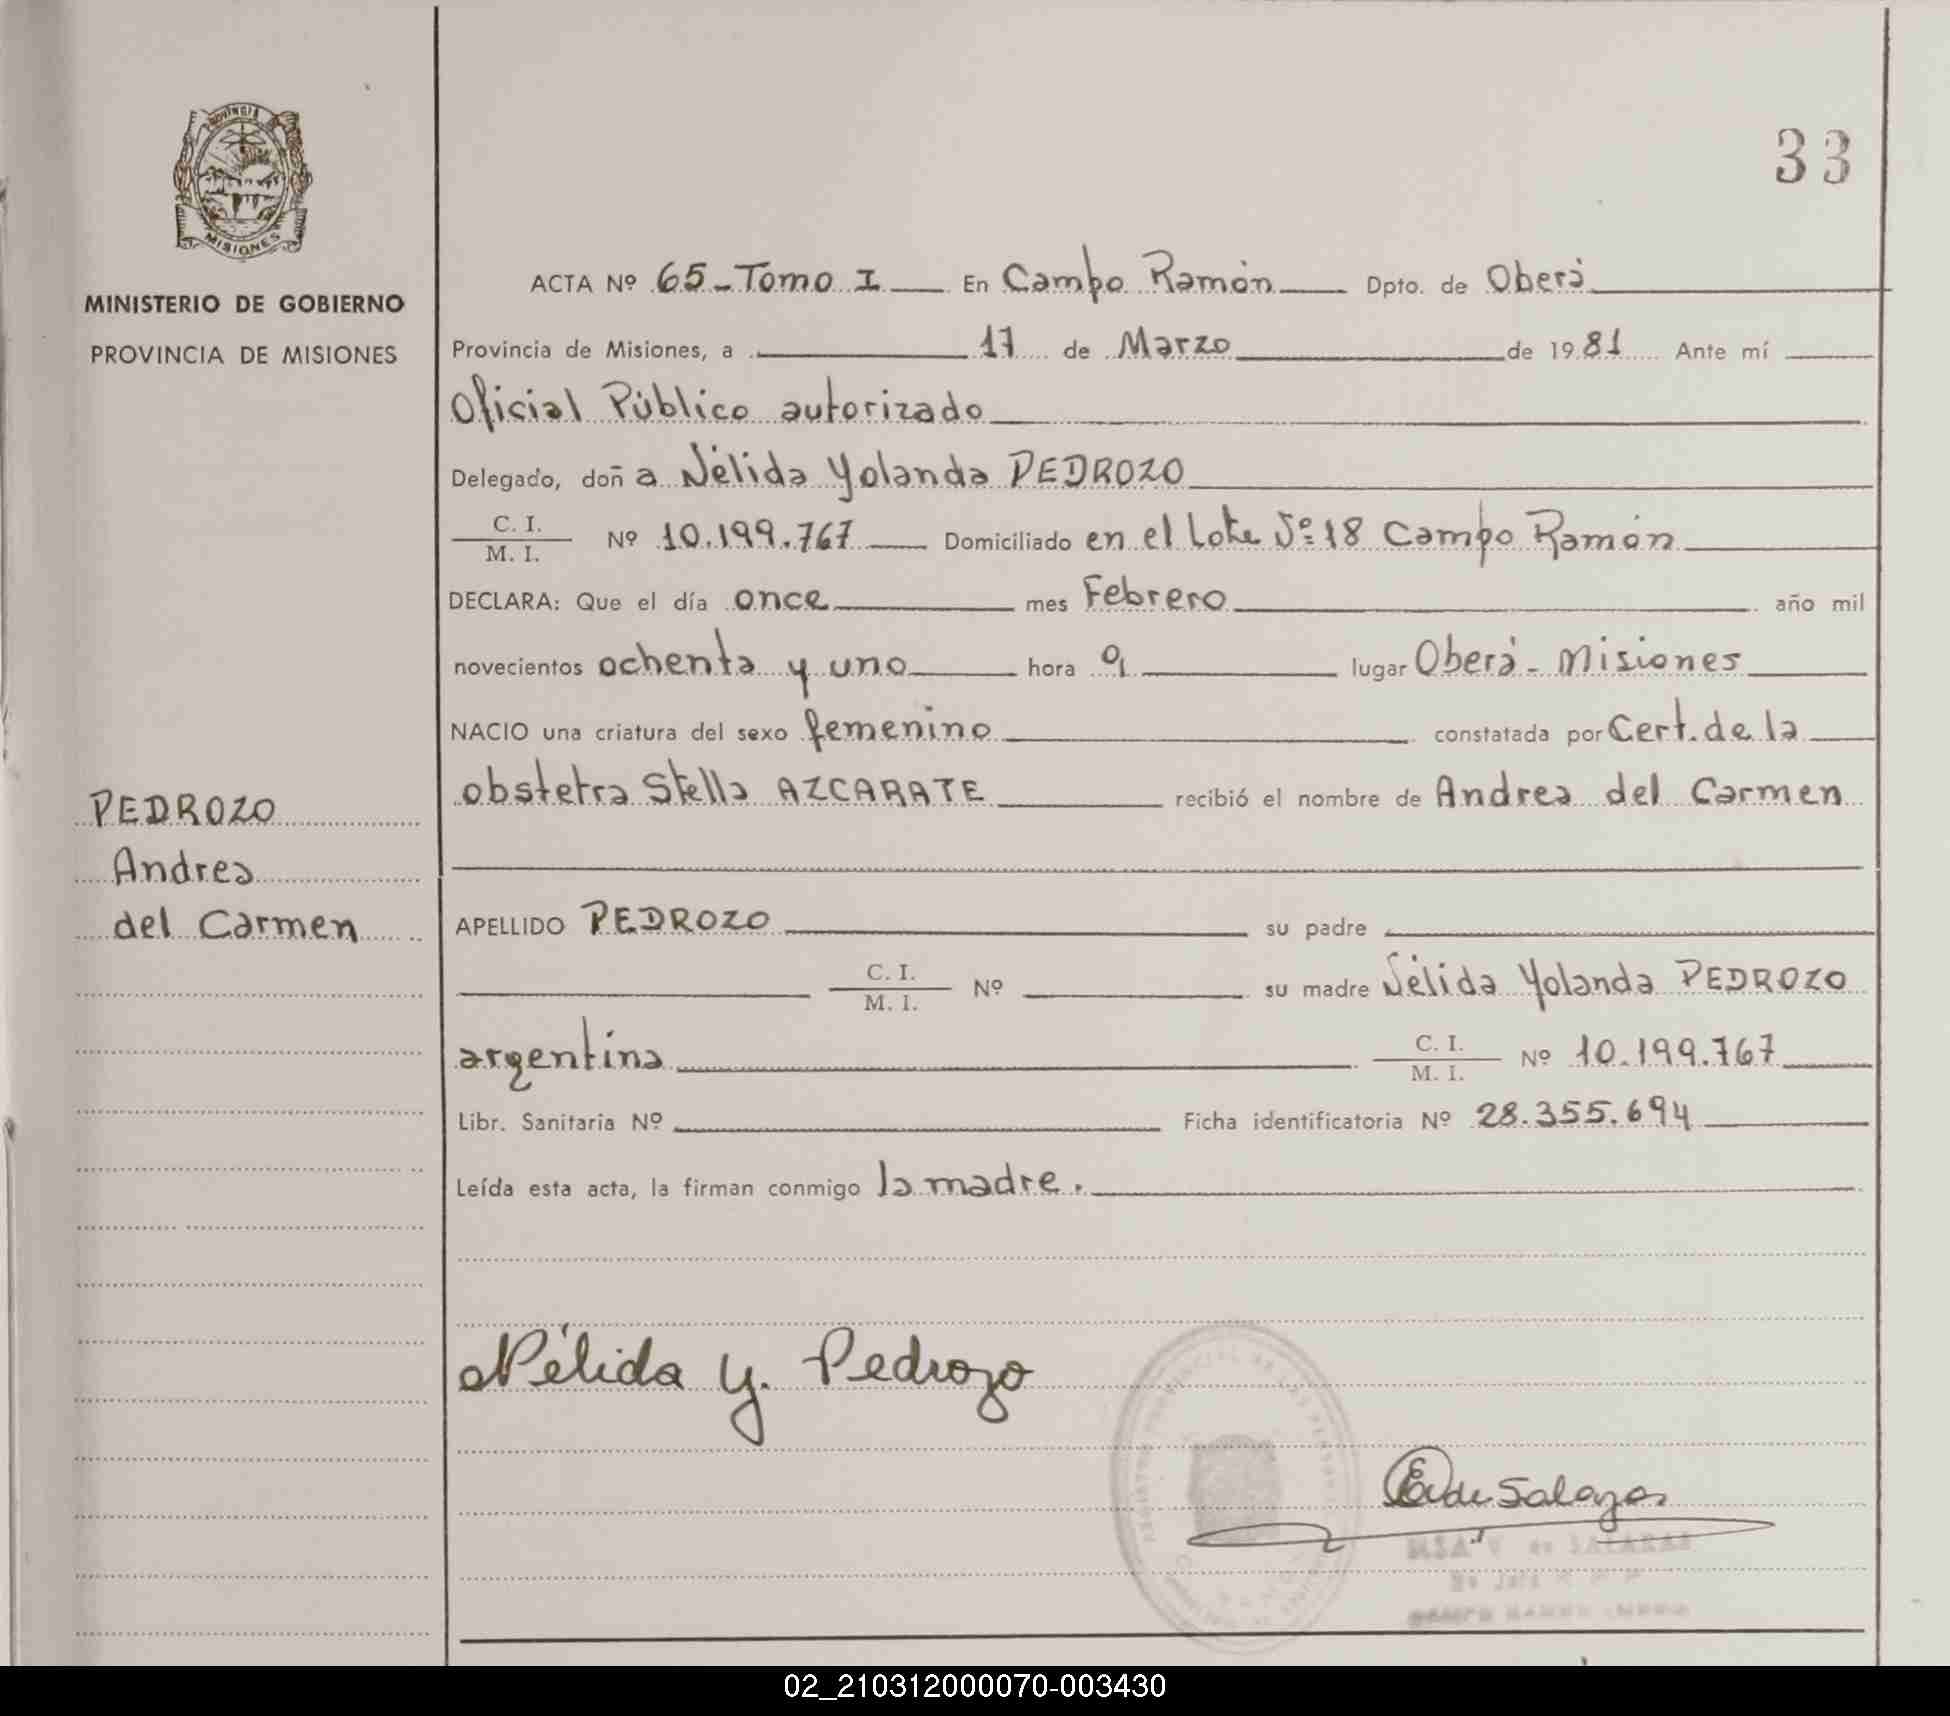 33
PROVINCIA
MISIONES
MINISTERIO DE GOBIERNO
PROVINCIA DE MISIONES
PEDROZO
Andrea
del Carmen
ACTA Nº 65 - Tomo I En Campo Ramón Dpto. de Oberá
Provincia de Misiones, a 17 de Marzo de 1981 Ante mí
Oficial Público autorizado
Delegado, doña Nélida Yolanda PEDROZO
C. I.
M. I. Nº 10.199.767 Domiciliado en el Lote Nº 18 Campo Ramón
DECLARA: Que el día once mes Febrero año mil
novecientos ochenta y uno hora 9 lugar Oberá - Misiones
NACIO una criatura del sexo femenino constatada por Cert. de la
obstetra Stella AZCARATE recibió el nombre de Andrea del Carmen
APELLIDO PEDROZO su padre
C. I.
M. I. Nº su madre Nélida Yolanda PEDROZO
argentina C. I.
M. I. Nº 10.199.767
Libr. Sanitaria Nº Ficha identificatoria Nº 28.355.694
Leída esta acta, la firman conmigo la madre.
Nélida Y. Pedrozo
de Salazar
02_210312000070-003430